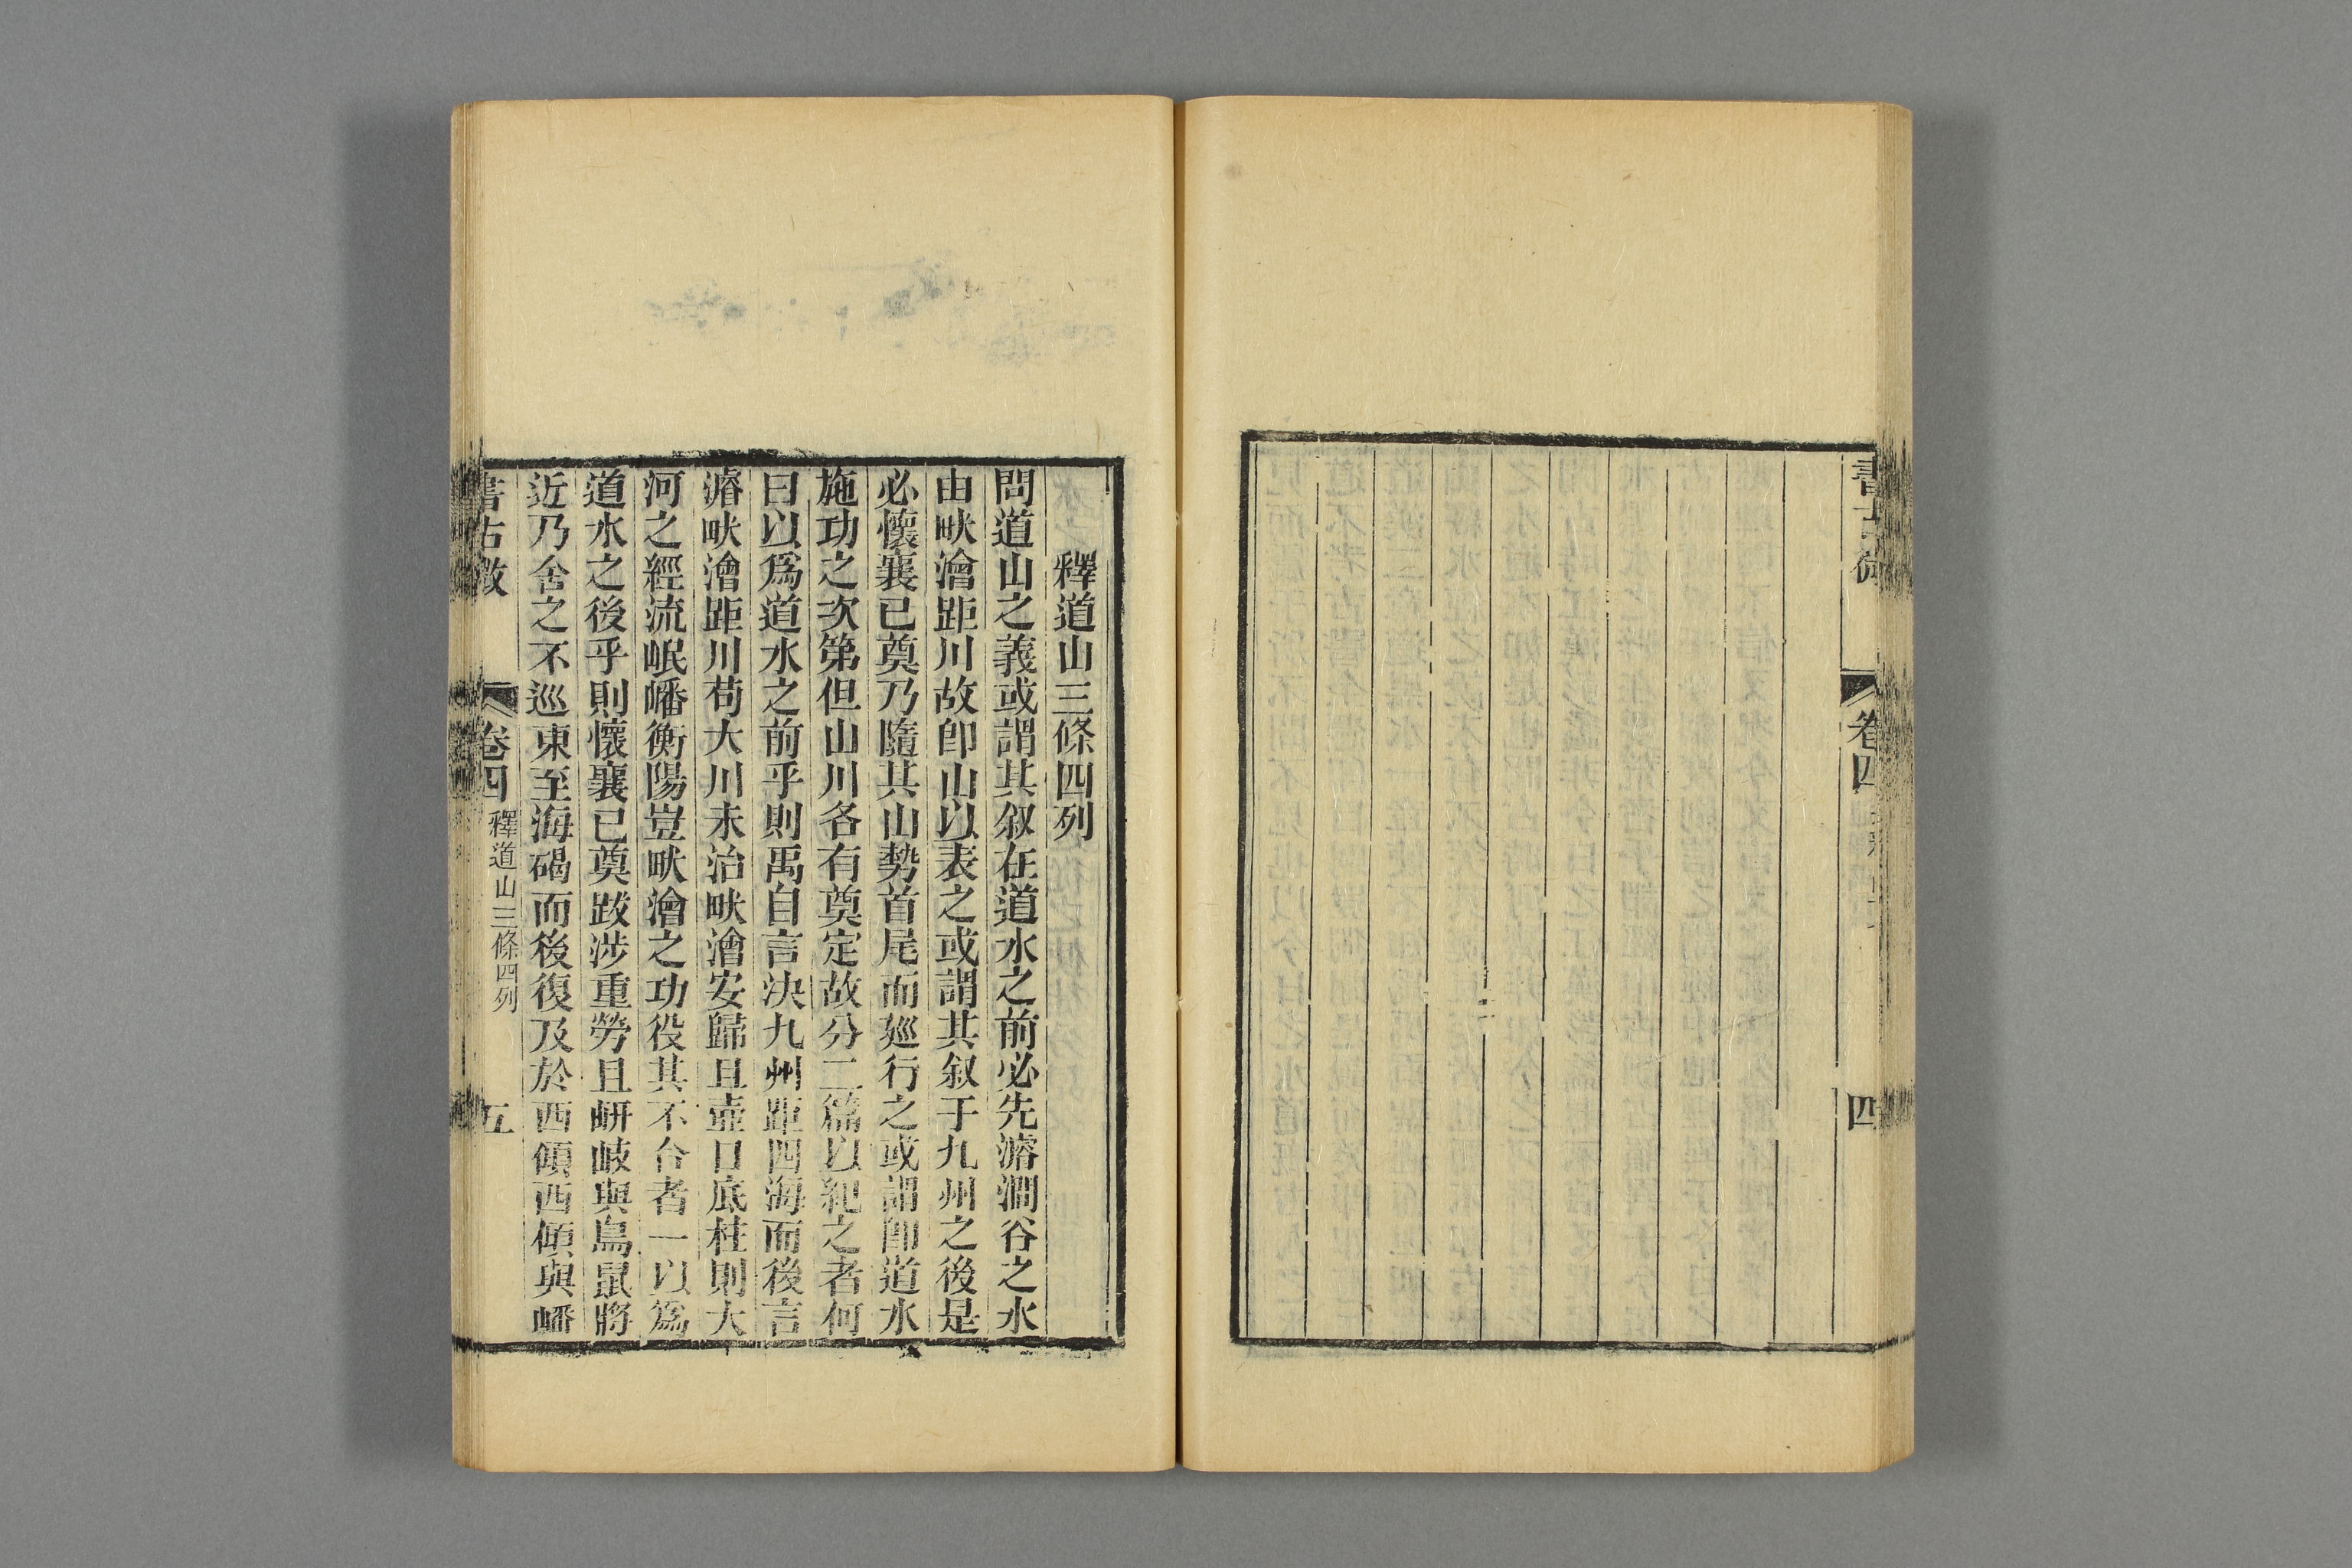 卷四
四
釋道山三條四列
問道山之義或謂其叙在道水之前必先濬澗谷之水
由畎澮距川故卽山以表之或謂其叙于九州之後是
必懷襄已奠乃隨其山勢首尾而廵行之或謂卽道水
施功之次第但山川各有奠定故分二篇以紀之者何
曰以爲道水之前乎則禹自言決九州距四海而後言
濬畎澮距川苟大川未治畎澮安歸且壺口底柱則大
河之經流岷嶓衡陽豈畎澮之功役其不合者一以爲
道水之後乎則懷襄已奠跋涉重勞且岍岐與鳥鼠將
近乃舍之不巡東至海碣而後復及於西傾西傾與嶓
書古微
卷四
釋道山三條四列
五